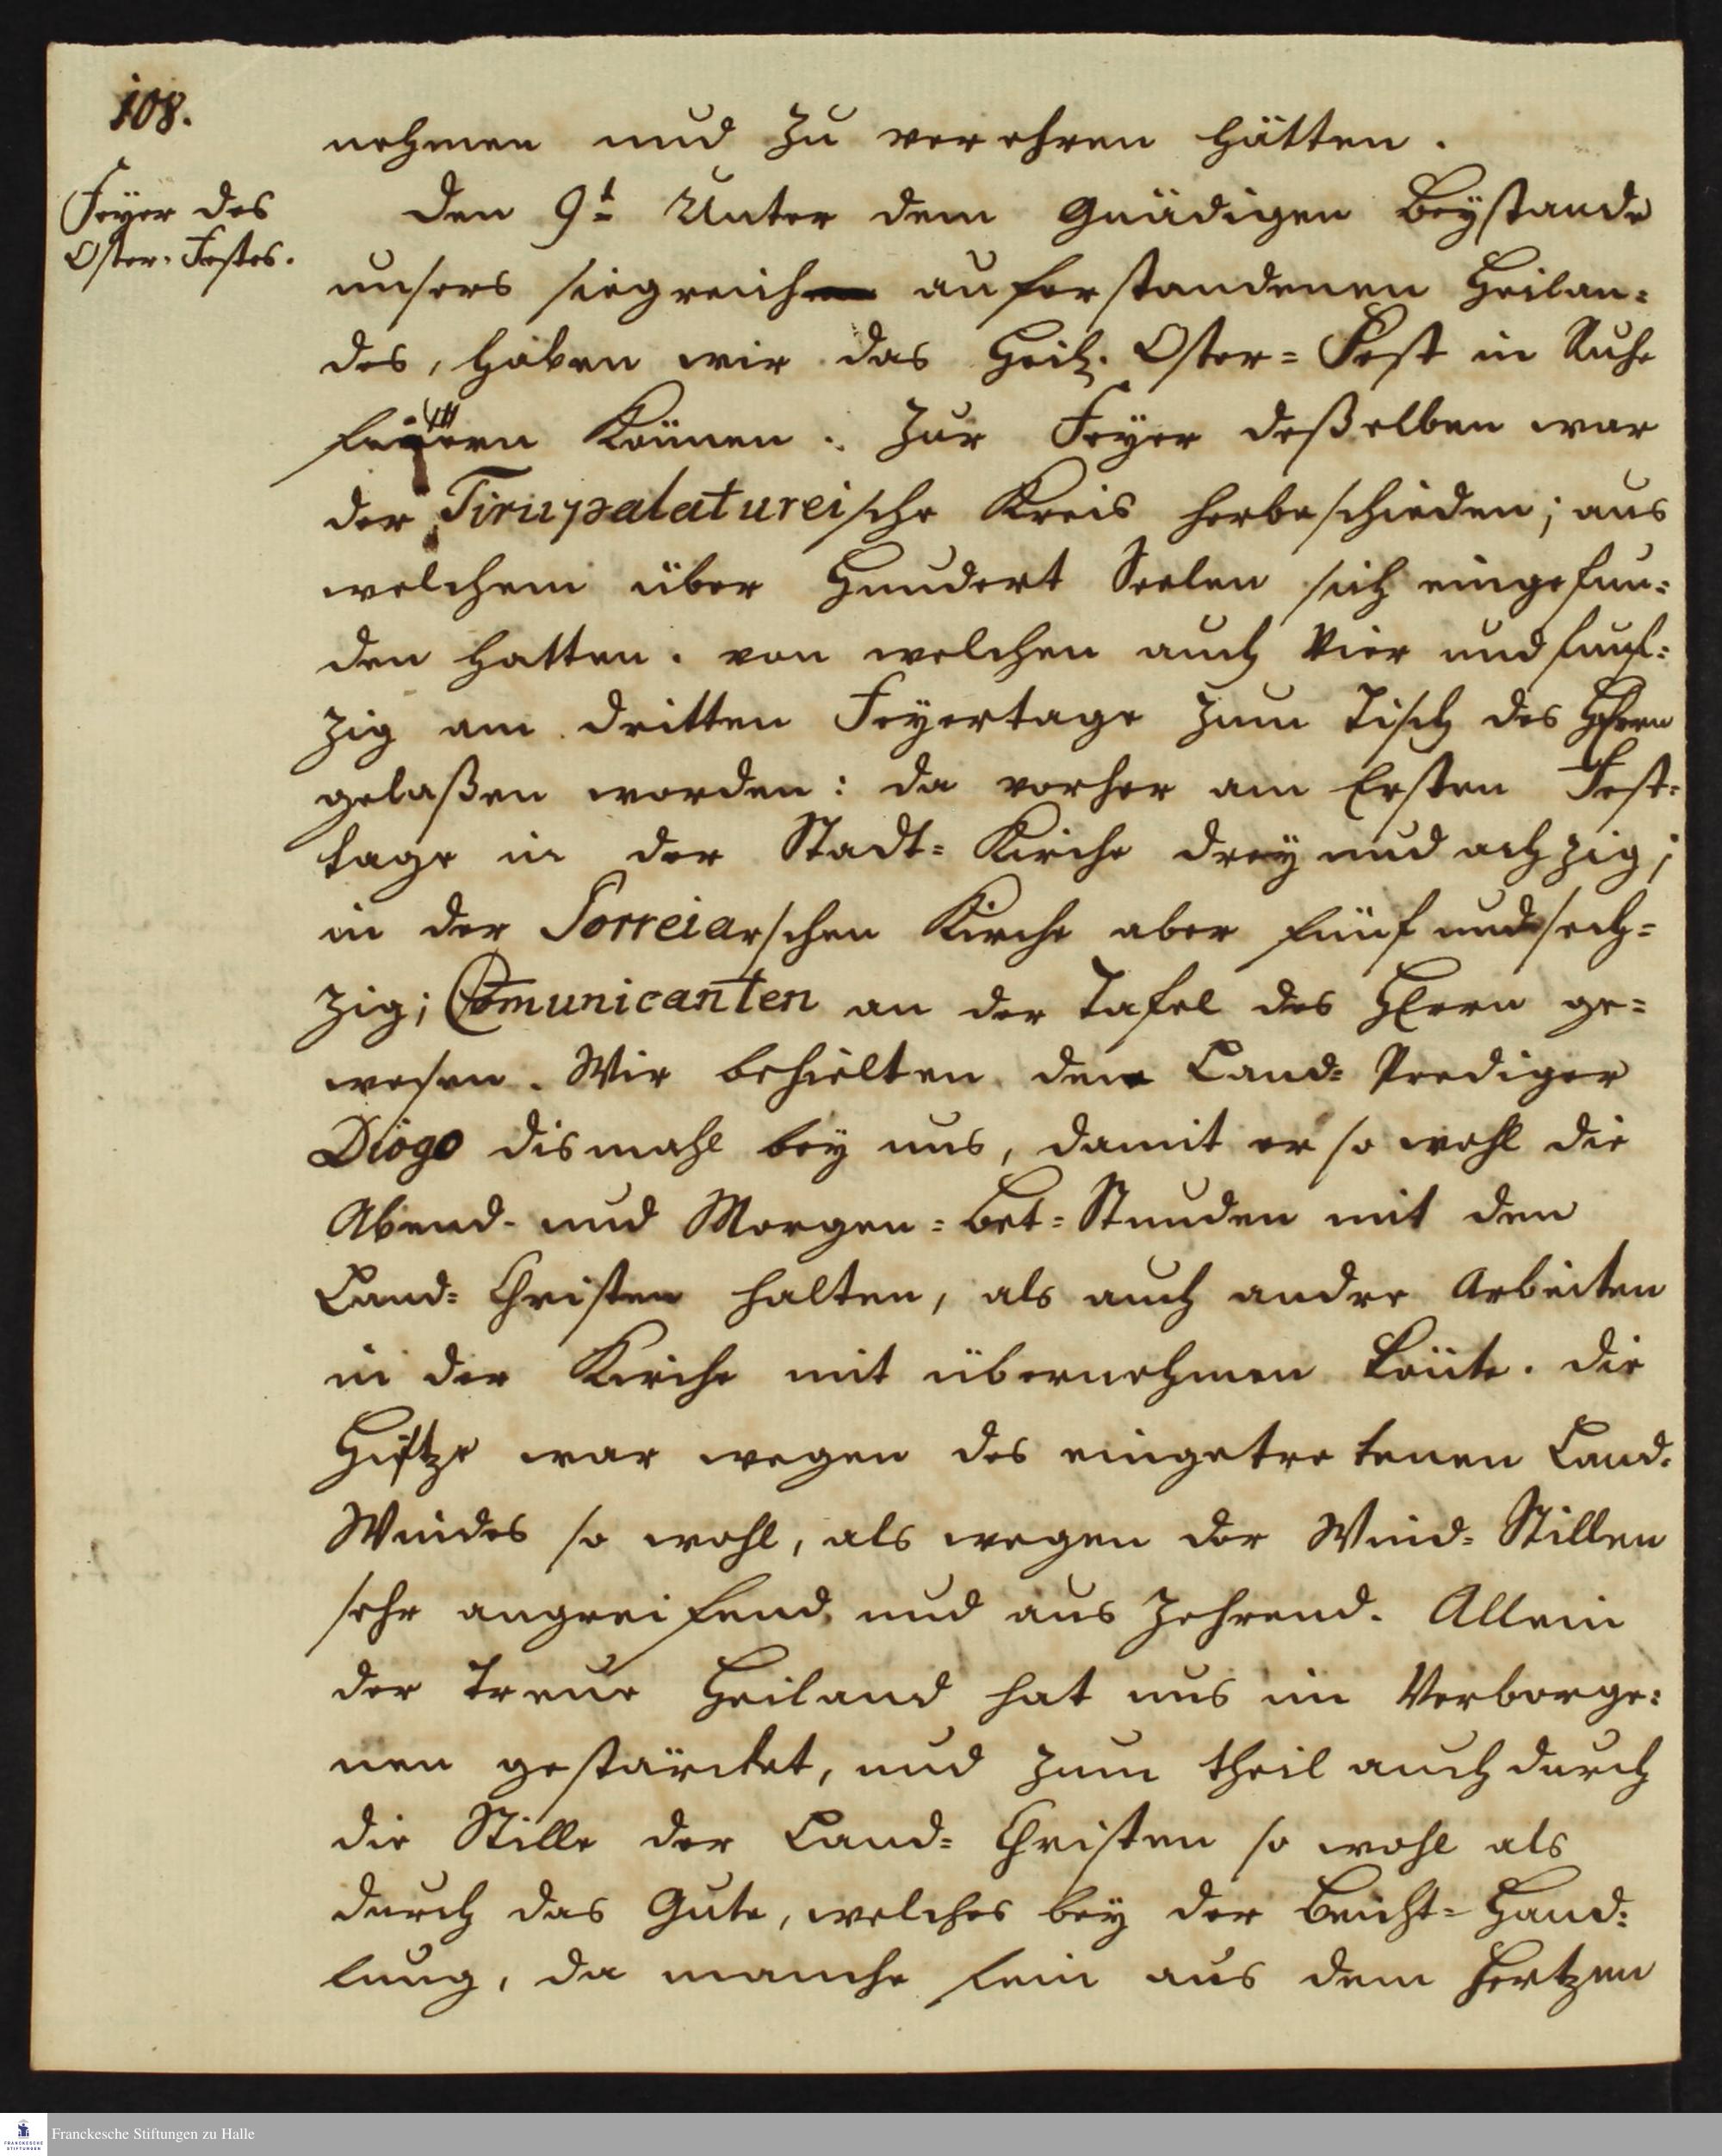 108.
nehmen und zu verehren hätten.
Feyer des
Oster-Festes.
Den 9t Unter dem Gnädigen Beystande
unsers siegreich auferstandenen Heilan=
des, haben wir das Heil. Oster=Fest in Ruhe
feyern können. Zur Feyer deßelben war
der Tirupalatureische Kreis herbeschieden; aus
welchem über Hundert Seelen sich eingefun=
den hatten. von welchen auch Vier und funf=
zig am dritten Feyertage zum Tisch des HErrn
gelaßen worden: da vorher am Ersten Fest=
tage in der Stadt=Kirche drey und achzig;
in der Porreiarschen Kirche aber fünf und sech=
zig; Com̄unicanten an der Tafel des HErrn ge=
wesen. Wir behielten den Land=Prediger
Diogo dismahl bey uns, damit er so wohl die
Abend- und Morgen=Bet=Stunden mit den
Land=Christen halten, als auch andre Arbeiten
in der Kirche mit übernehmen könte. Die
Hitze war wegen des eingetretenen Land=
Windes so wohl, als wegen der Wind=Stillen
sehr angreifend, und aus zehrend. Allein
der Treue Heiland hat uns im Verborge=
nen gestärcket, und zum theil auch durch
die Stille der Land=Christen so wohl als
durch das Gute, welches bey der Beicht=Hand=
lung, da manche fein aus dem Hertzen
Franckesche Stiftungen zu Halle
FRANCKESCHE
STIFTUNGEN